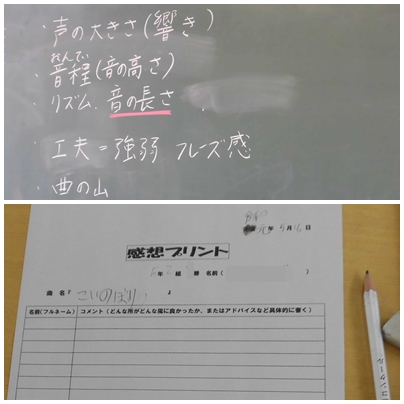 ・声の大きさ(響き)
おんてい
・音程(音の高さ)
・リズム. 音の長さ
工夫=強弱 フレーズ感
・曲の山
年5月16日
感想プリント
6年 組 番 名前( )
曲名『こいのぼり』
名前(フルネーム) コメント(どんな所がどんな風に良かったか、またはアドバイスなど具体的に書く)
コンクール